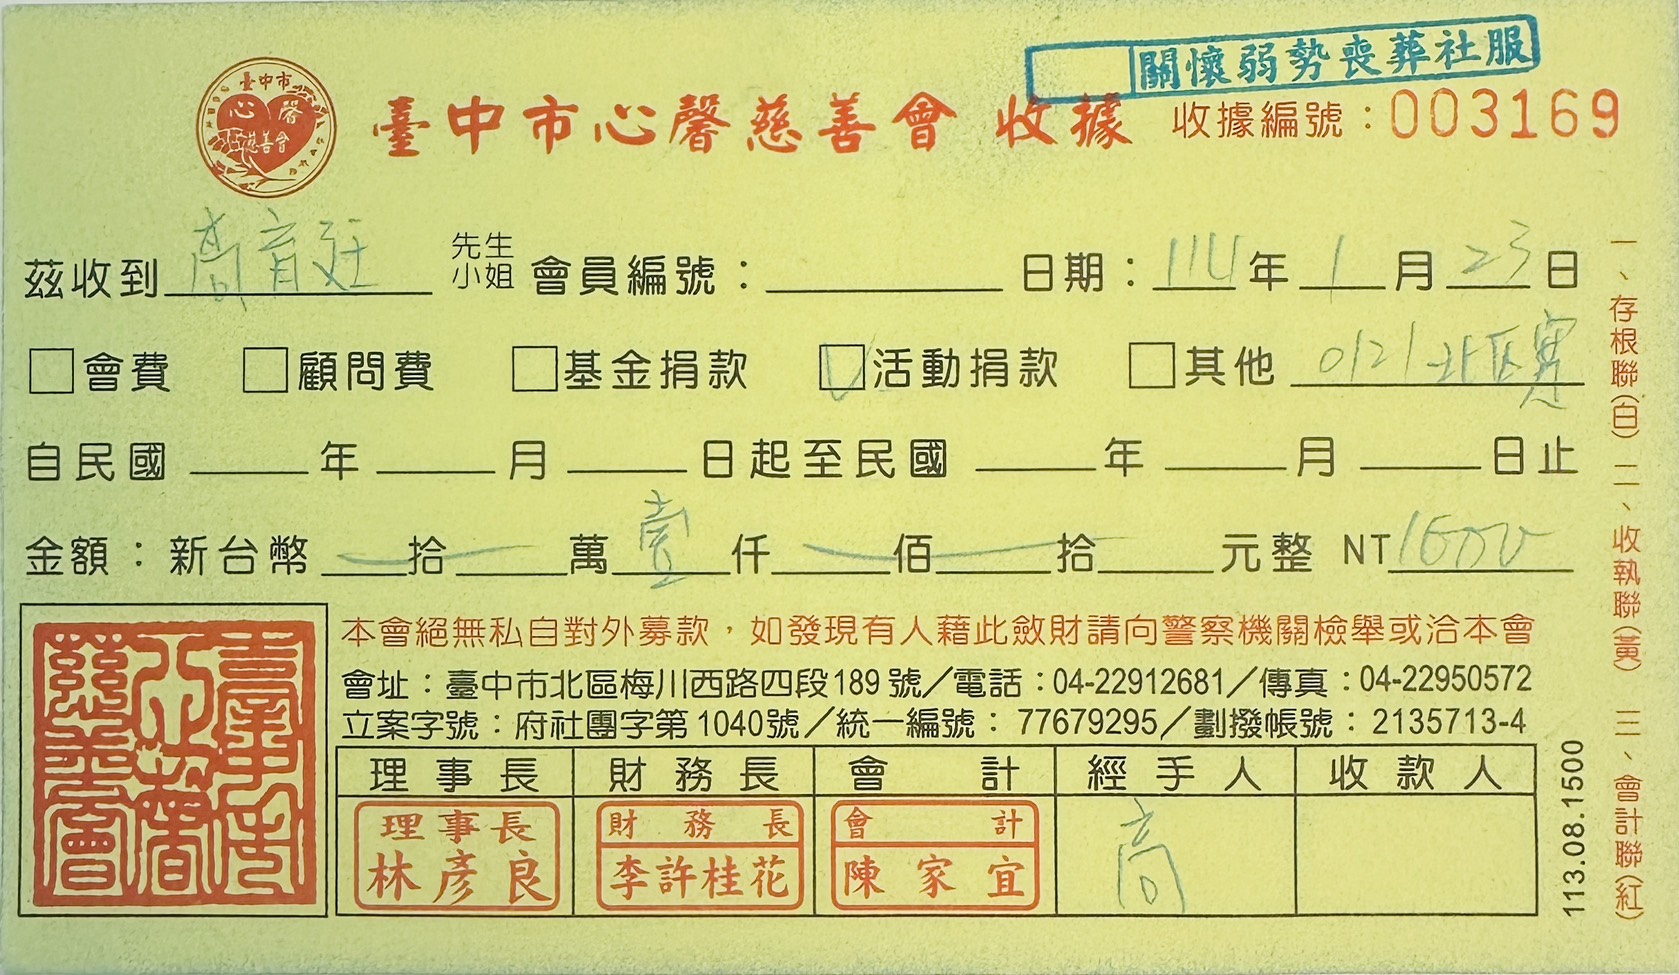 關懷弱勢喪葬社服
臺中市
心馨
慈善會
臺中市心馨慈善會 收據
收據編號：003169
茲收到 高育廷 先生 小姐 會員編號： 日期：114年1月23日
□會費 □顧問費 □基金捐款 ☑活動捐款 □其他 0121北區寒
自民國 年 月 日起至民國 年 月 日止
金額：新台幣 拾 萬 壹 仟 佰 拾 元整 NT 1000
本會絕無私自對外募款，如發現有人藉此斂財請向警察機關檢舉或洽本會
會址：臺中市北區梅川西路四段189號／電話：04-22912681／傳真：04-22950572
立案字號：府社團字第1040號／統一編號：77679295／劃撥帳號：2135713-4
理事長 財務長 會計 經手人 收款人
理事長 財務長 會計
林彥良 李許桂花 陳家宜 高
臺中市心馨慈善會
一、存根聯(白) 二、收執聯(黃) 三、會計聯(紅)
113.08.1500